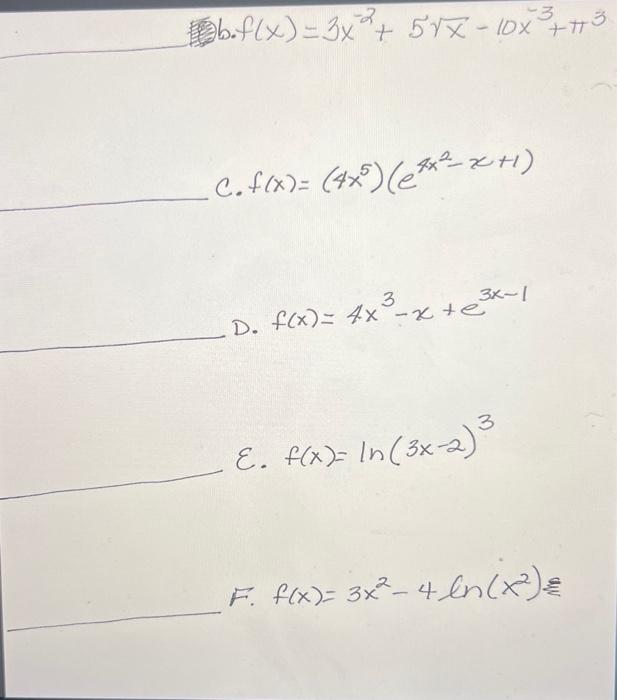 b. f(x) = 3x⁻² + 5√x - 10x⁻³ + π³
C. f(x) = (4x⁵)(e^(4x²-x+1))
D. f(x) = 4x³ - x + e^(3x-1)
E. f(x) = ln(3x-2)³
F. f(x) = 3x² - 4 ln(x²)